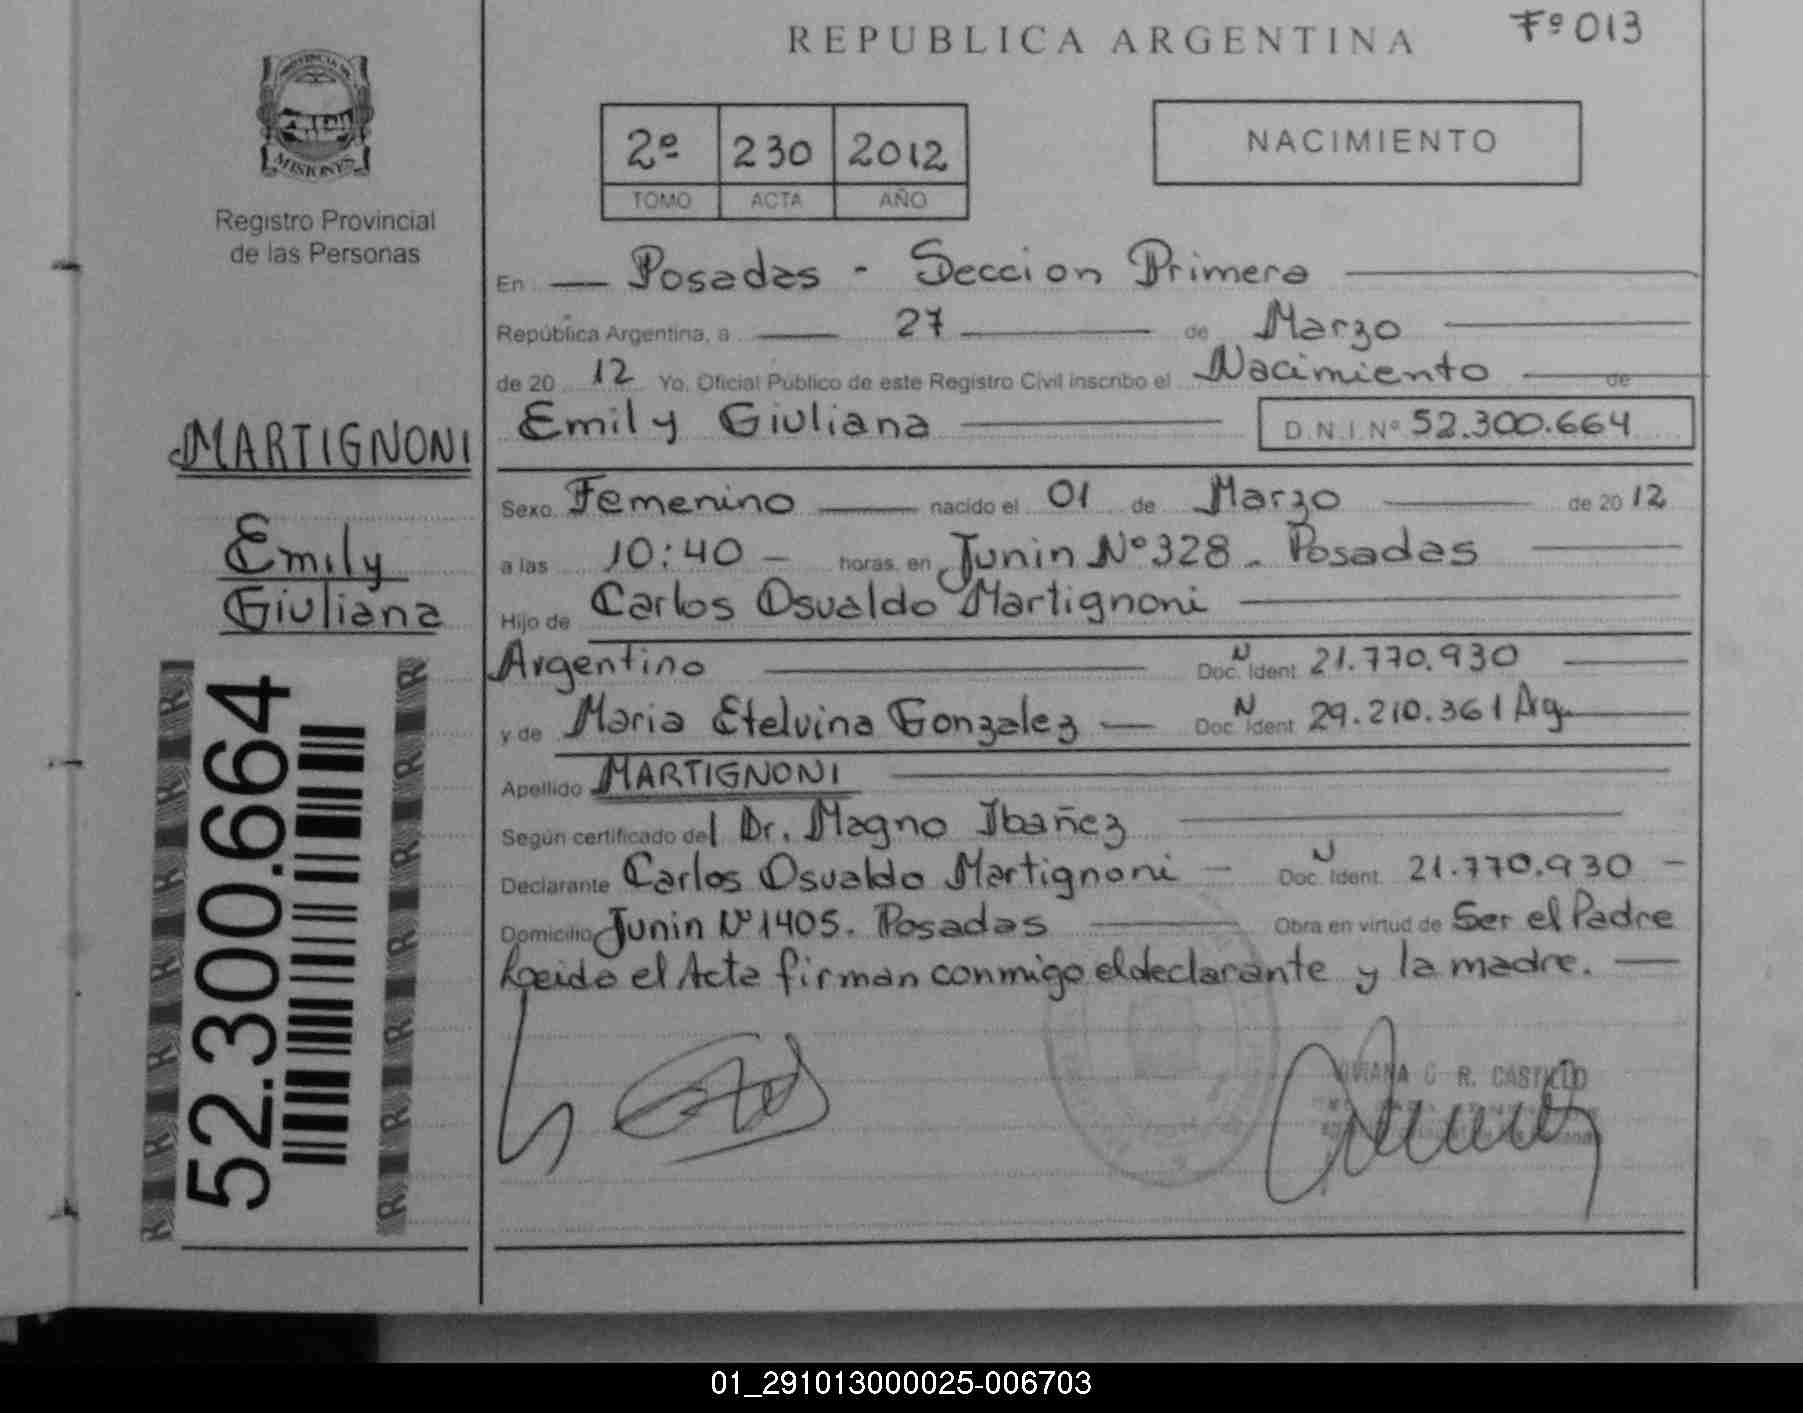 Fº 013
REPUBLICA ARGENTINA
MISIONES
Registro Provincial
de las Personas
2º 230 2012
TOMO ACTA AÑO
NACIMIENTO
En Posadas - Seccion Primera
República Argentina, a 27 de Marzo
de 20 12 Yo, Oficial Público de este Registro Civil inscribo el Nacimiento de
Emily Giuliana D.N.I. Nº 52.300.664
Sexo Femenino nacido el 01 de Marzo de 20 12
a las 10:40 - horas, en Junin Nº 328 - Posadas
Hijo de Carlos Osvaldo Martignoni
Argentino Doc. N Ident 21.770.930
y de Maria Etelvina Gonzalez — Doc. N Ident 29.210.361 Arg.
Apellido MARTIGNONI
Según certificado del Dr. Magno Ibañez
Declarante Carlos Osvaldo Martignoni - Doc. Ident. 21.770.930 -
Domicilio Junin Nº 1405. Posadas Obra en virtud de Ser el Padre
Leida el Acta firman conmigo el declarante y la madre. —
R. CASTILLO
MARTIGNONI
Emily
Giuliana
52.300.664
R R R R R R R
R R R R R R R
01_291013000025-006703